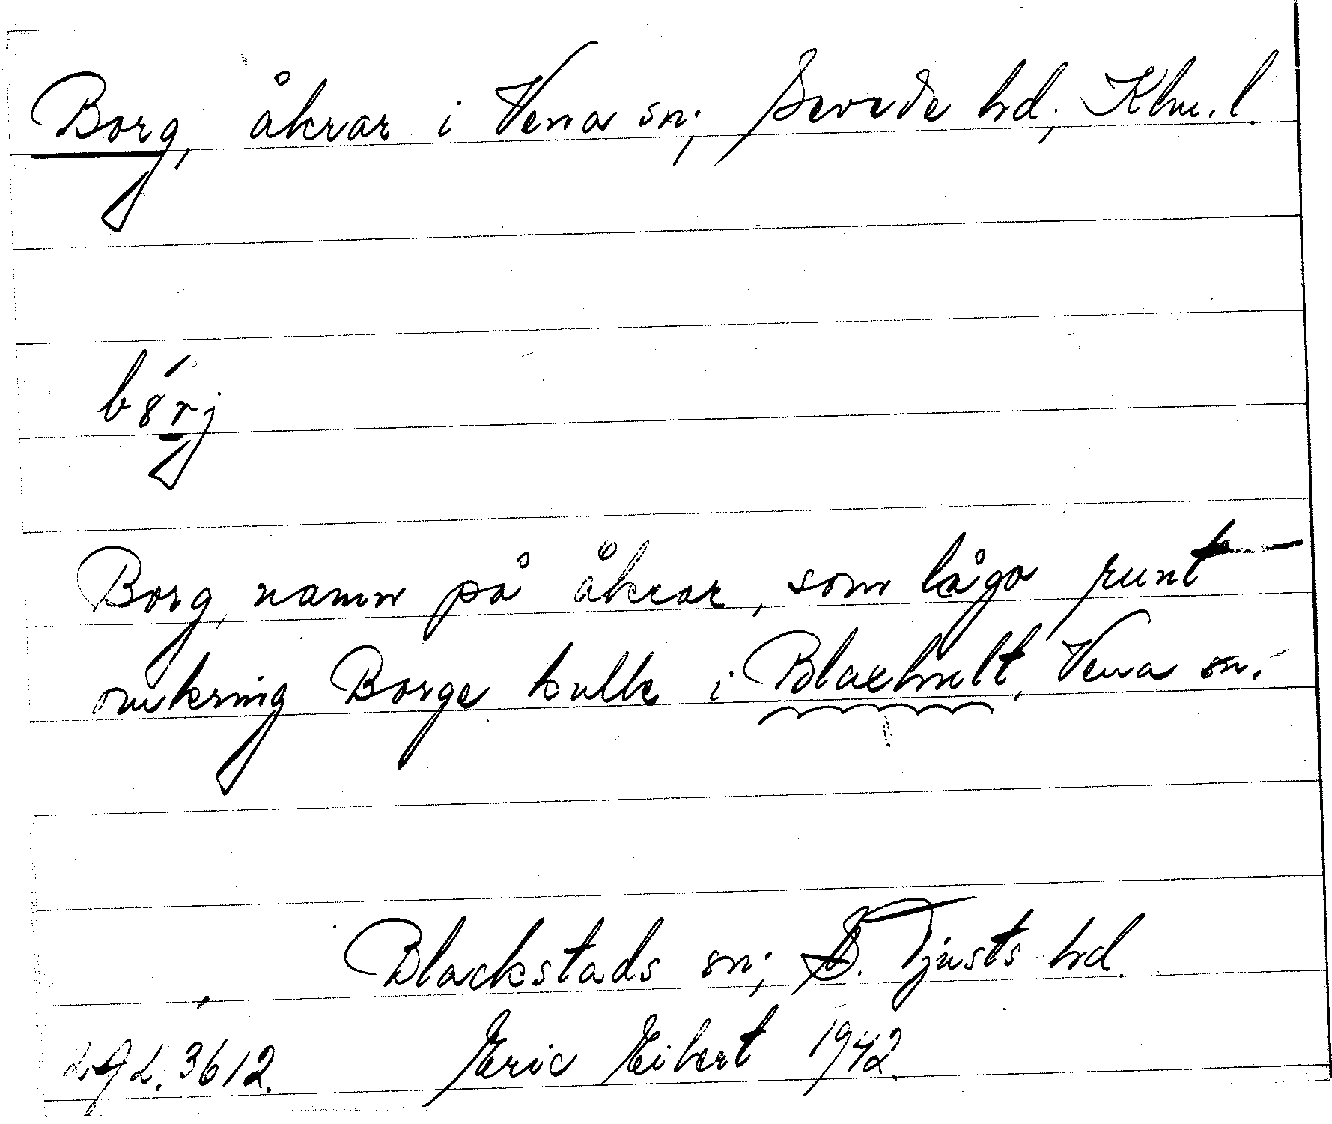 Borg, åkrar i Vena sn; Sevede hd; Klm. l.
bo̒rj
Borg, namn på åkrar, som lågo runt
omkring Borge kulle i Blaehult, Vena sn.
Blackstads sn; S. Tjusts hd.
3612. Eric Eibert 1942.